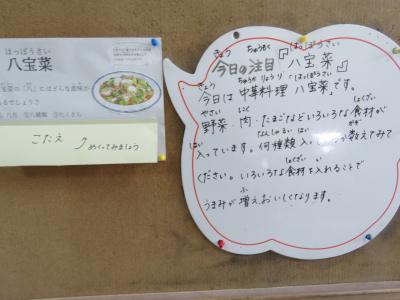 はっぽうさい
八宝菜
八宝菜の「八」にはどんな意味が
あるでしょう?
②八種類 ③たくさん
こたえ
めくってみましょう
きょう ちゅうもく はっぽうさい
今日の注目『八宝菜』
きょう ちゅうかりょうり はっぽうさい
今日は中華料理「八宝菜」です。
やさい にく しょくざい
野菜・肉・たまごなどいろいろな食材が
はい なんしゅるい はい かぞ
入っています。何種類入 数えてみて
しょくざい い
ください。いろいろな食材を入れることで
ふ
うまみが増えおいしくなります。